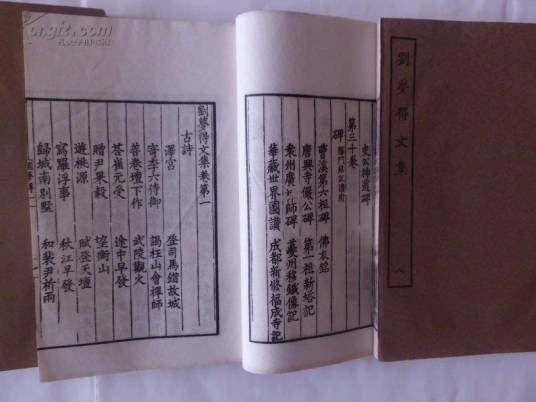 劉夢得文集
八
史公神道碑
第三十卷
碑 釋門銘記讚附
曹溪第六祖碑 佛衣銘
唐興寺儼公碑 第一祖新塔記
師碑 夔州移鐵像記
華藏世界圖讚 成都新修福成寺記
劉夢得文集卷第一
古詩
澤宮 登司馬錯故城
寄李六侍御 謁枉山會禪師
善卷壇下作 武陵觀火
荅崔元受 途中早發
贈尹果毅 望衡山
遊桃源 賦登天壇
寫羅浮事 秋江早發
歸城南別墅 和裴尹祈雨